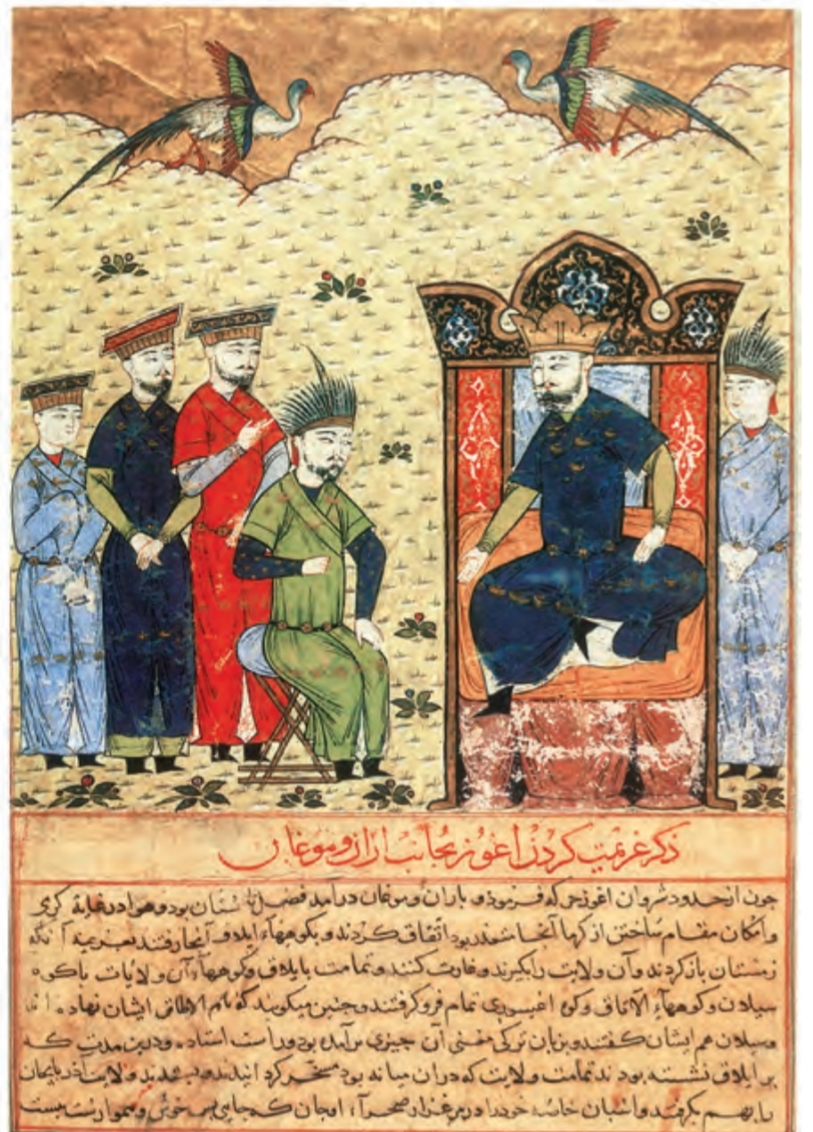 ذکر عزیمت کردن اغوز بجانب اران و موغان
چون از حدود شروان اغوز حرکت فرمود و باران و موغان درآمد فصل تابستان بود و هوا در غایة کرمی
و امکان مقام ساختن از کرما آنجا نبود اتفاق کردند و بکوههاء ایلاق آنجا رفتند بعزیمة آنکه
زمستان باز کردند و آن ولایت را بکیرند و غارت کنند و تمامت یایلاق و کوههاء آن ولایات باکوه
سبلان و کوههاء الاتاق و کوه اغبسوری تمام فرو کرفتند و چنین میکویند که نام الاطاق ایشان نهاده اند
و سبلان هم ایشان کفتند و بزبان ترکی معنی آن چیزی برآمده بود و راست استاده و درین مدت که
بر ایلاق نشسته بودند تمامت ولایت که دران میانه بود مسخر کردانیدند و ولایت آذربایجان
را بهم بکرفتند و اسبان خاصه خود را در مرغزار صحراء اوجان که جای بس خوش و هموارست ببست